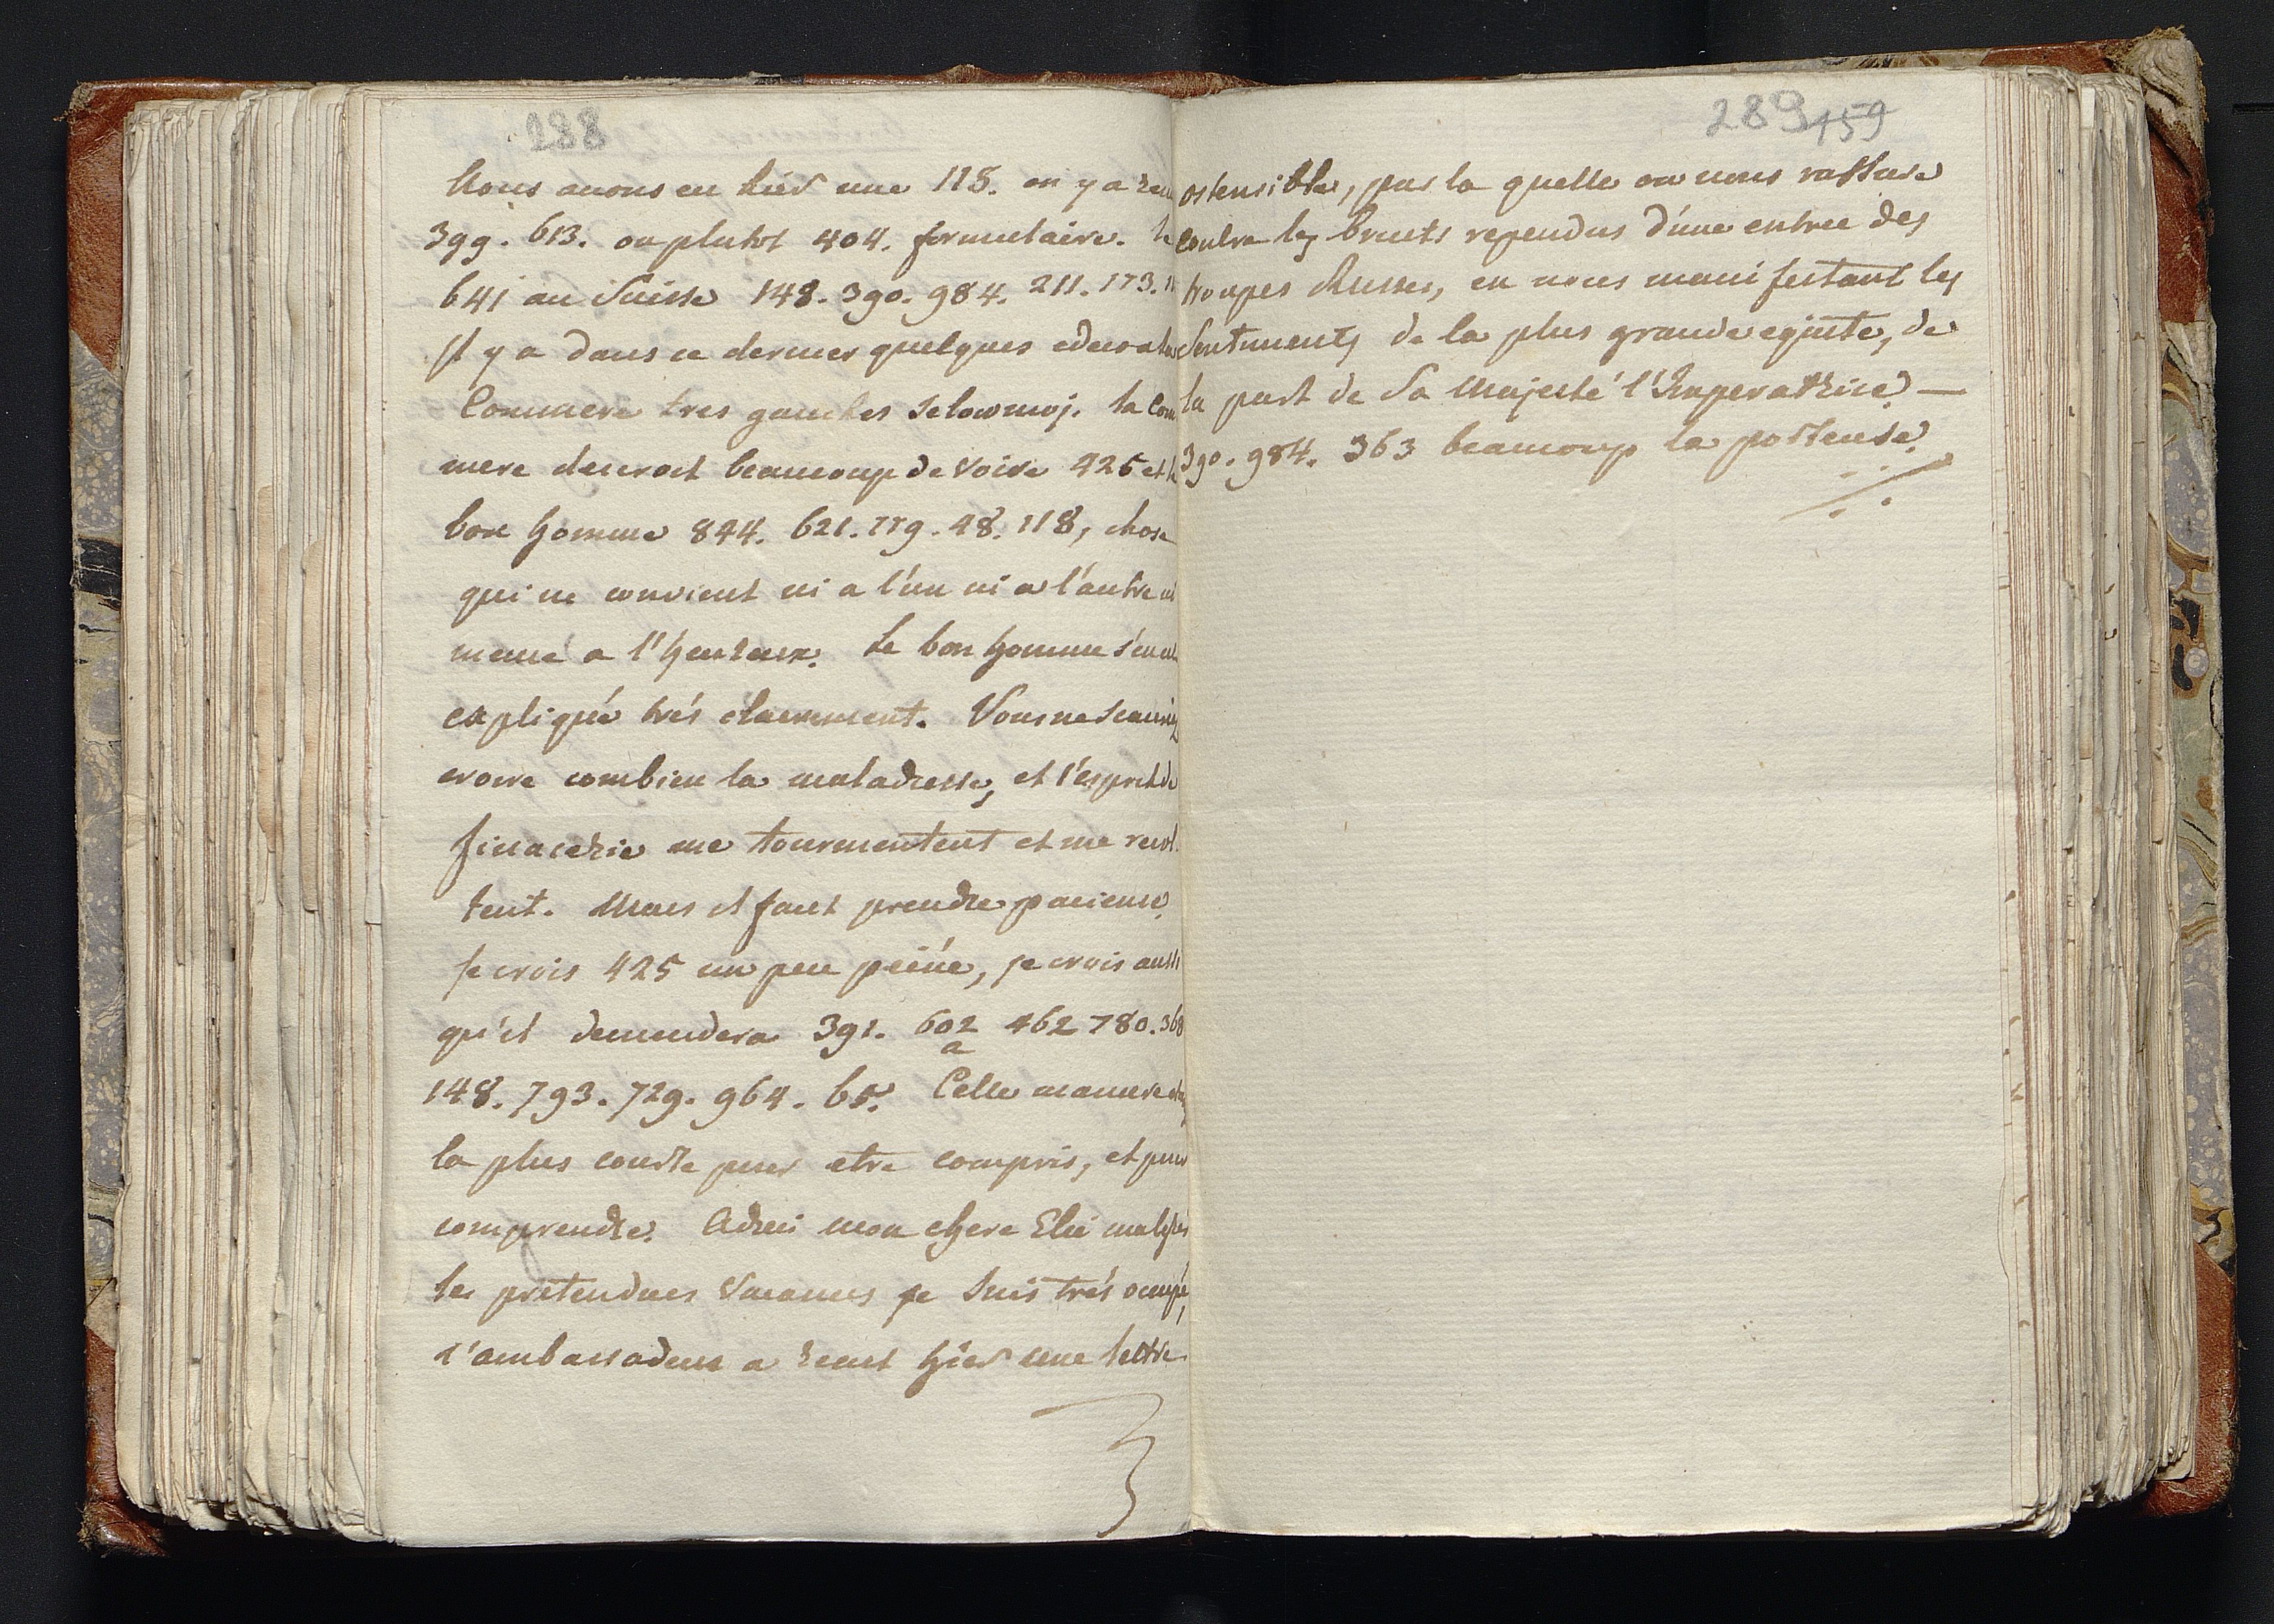 288
Nous avons eu hiér une 118. on y a
399. 613. ou plutot 404. formulaire. le
641 au Suisse 148. 390. 984. 211. 173.
Il y a dans ce dernier quelques
Commere tres gauches selon moj. la Com
mere desiroit beaucoup de voire 425 et le
bon homme 844. 621. 779. 48. 118, chose
qui ne convient ni a l'un ni a l'autre ni
meme a l'heureux. Le bon homme s'en est
expliqué trés clairement. Vous ne scauriez
croire combien la maladresse, et l'esprit de
finacerie me tourmentent et me revol
tent. Mais il faut prendre pacience.
Je crois 425 un peu peiné, je crois aussi
qu'il demendera 391. 602 462 780. 368
a
148. 793. 729. 964. 65. Celle maniere etant
la plus courte pour etre compris, et pour
comprendre. Adieu mon chere Elie malgré
les pretendues vacances je suis trés occupé,
l'ambassadeur a recut hiér une lettre
289 159
ostensible, par la quelle on nous rassure
contre les bruits rependus d'une entree des
troupes Russes, en nous manifestant les
sentiments de la plus grande equité, de
la part de Sa Majesté l'Imperatrice —
390. 984. 363 beaucoup la porteuse.